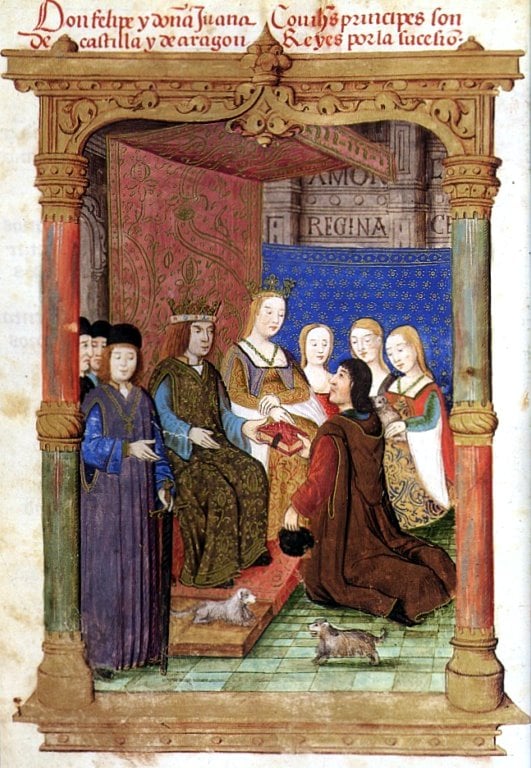 Don felipe y doña Juana principes son
de castilla y de aragon Reyes por la sucesio
AMOR
REGINA